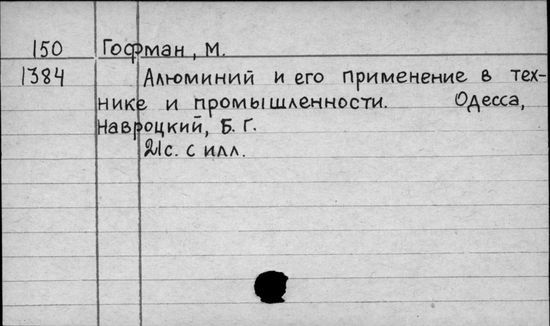 150 Гофман, М.
1384 Алюминий и его применение в тех-
нике и промышленности. Одесса,
Навроцкий, Б. Г.
21с. с илл.